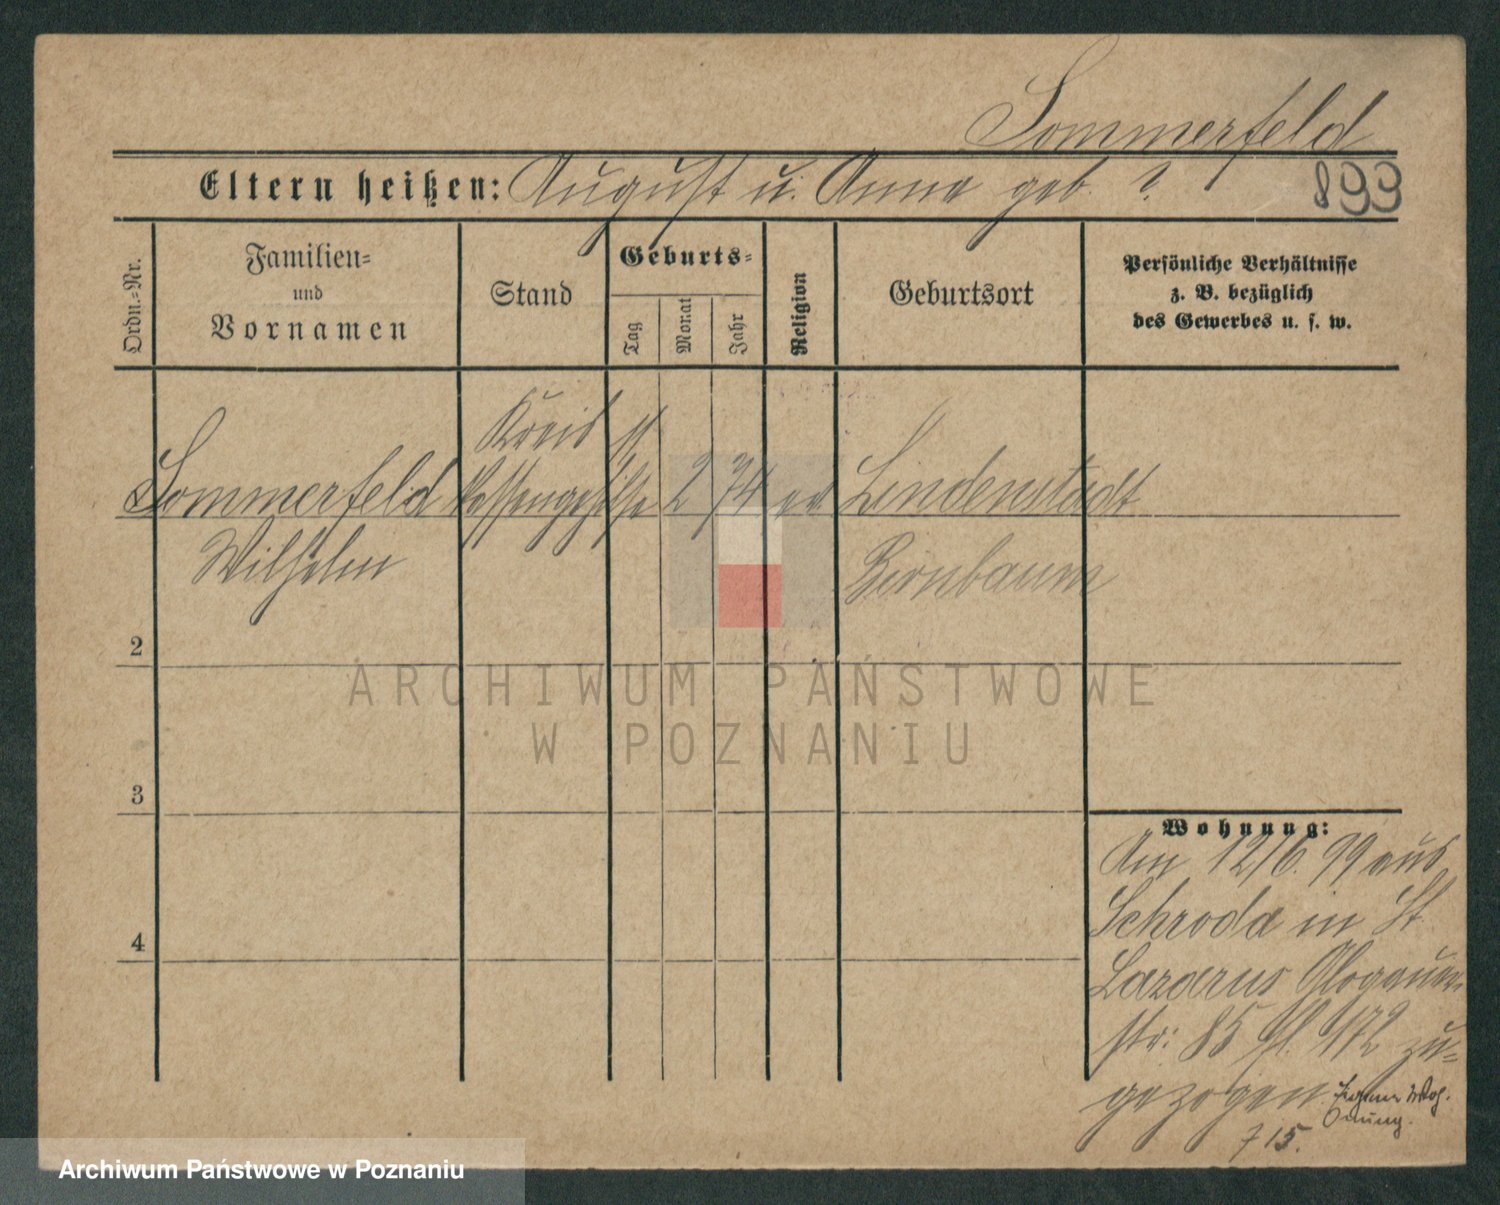 Sommerfeld
Eltern heißen: August u. Anna geb. ?
899
Ordn.=Nr.
Familien=
und
Vornamen
Stand
Geburts=
Tag
Monat
Jahr
Religion
Geburtsort
Persönliche Verhältnisse
z. B. bezüglich
des Gewerbes u. s. w.
Kreis
Sommerfeld Kassengehilfe 2 74 ev Lindenstadt
Wilhelm Birnbaum
2
3
4
Wohnung:
Am 12/6. 99 aus
Schroda in St.
Lazarus Glogauer
str: 85 172 zu=
gezogen
715.
ARCHIWUM PAŃSTWOWE
W POZNANIU
Archiwum Państwowe w Poznaniu